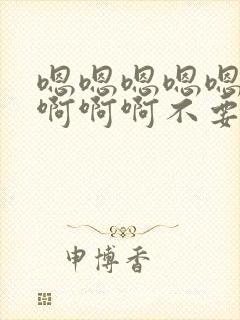 嗯嗯嗯嗯嗯
啊啊啊不要
申博香